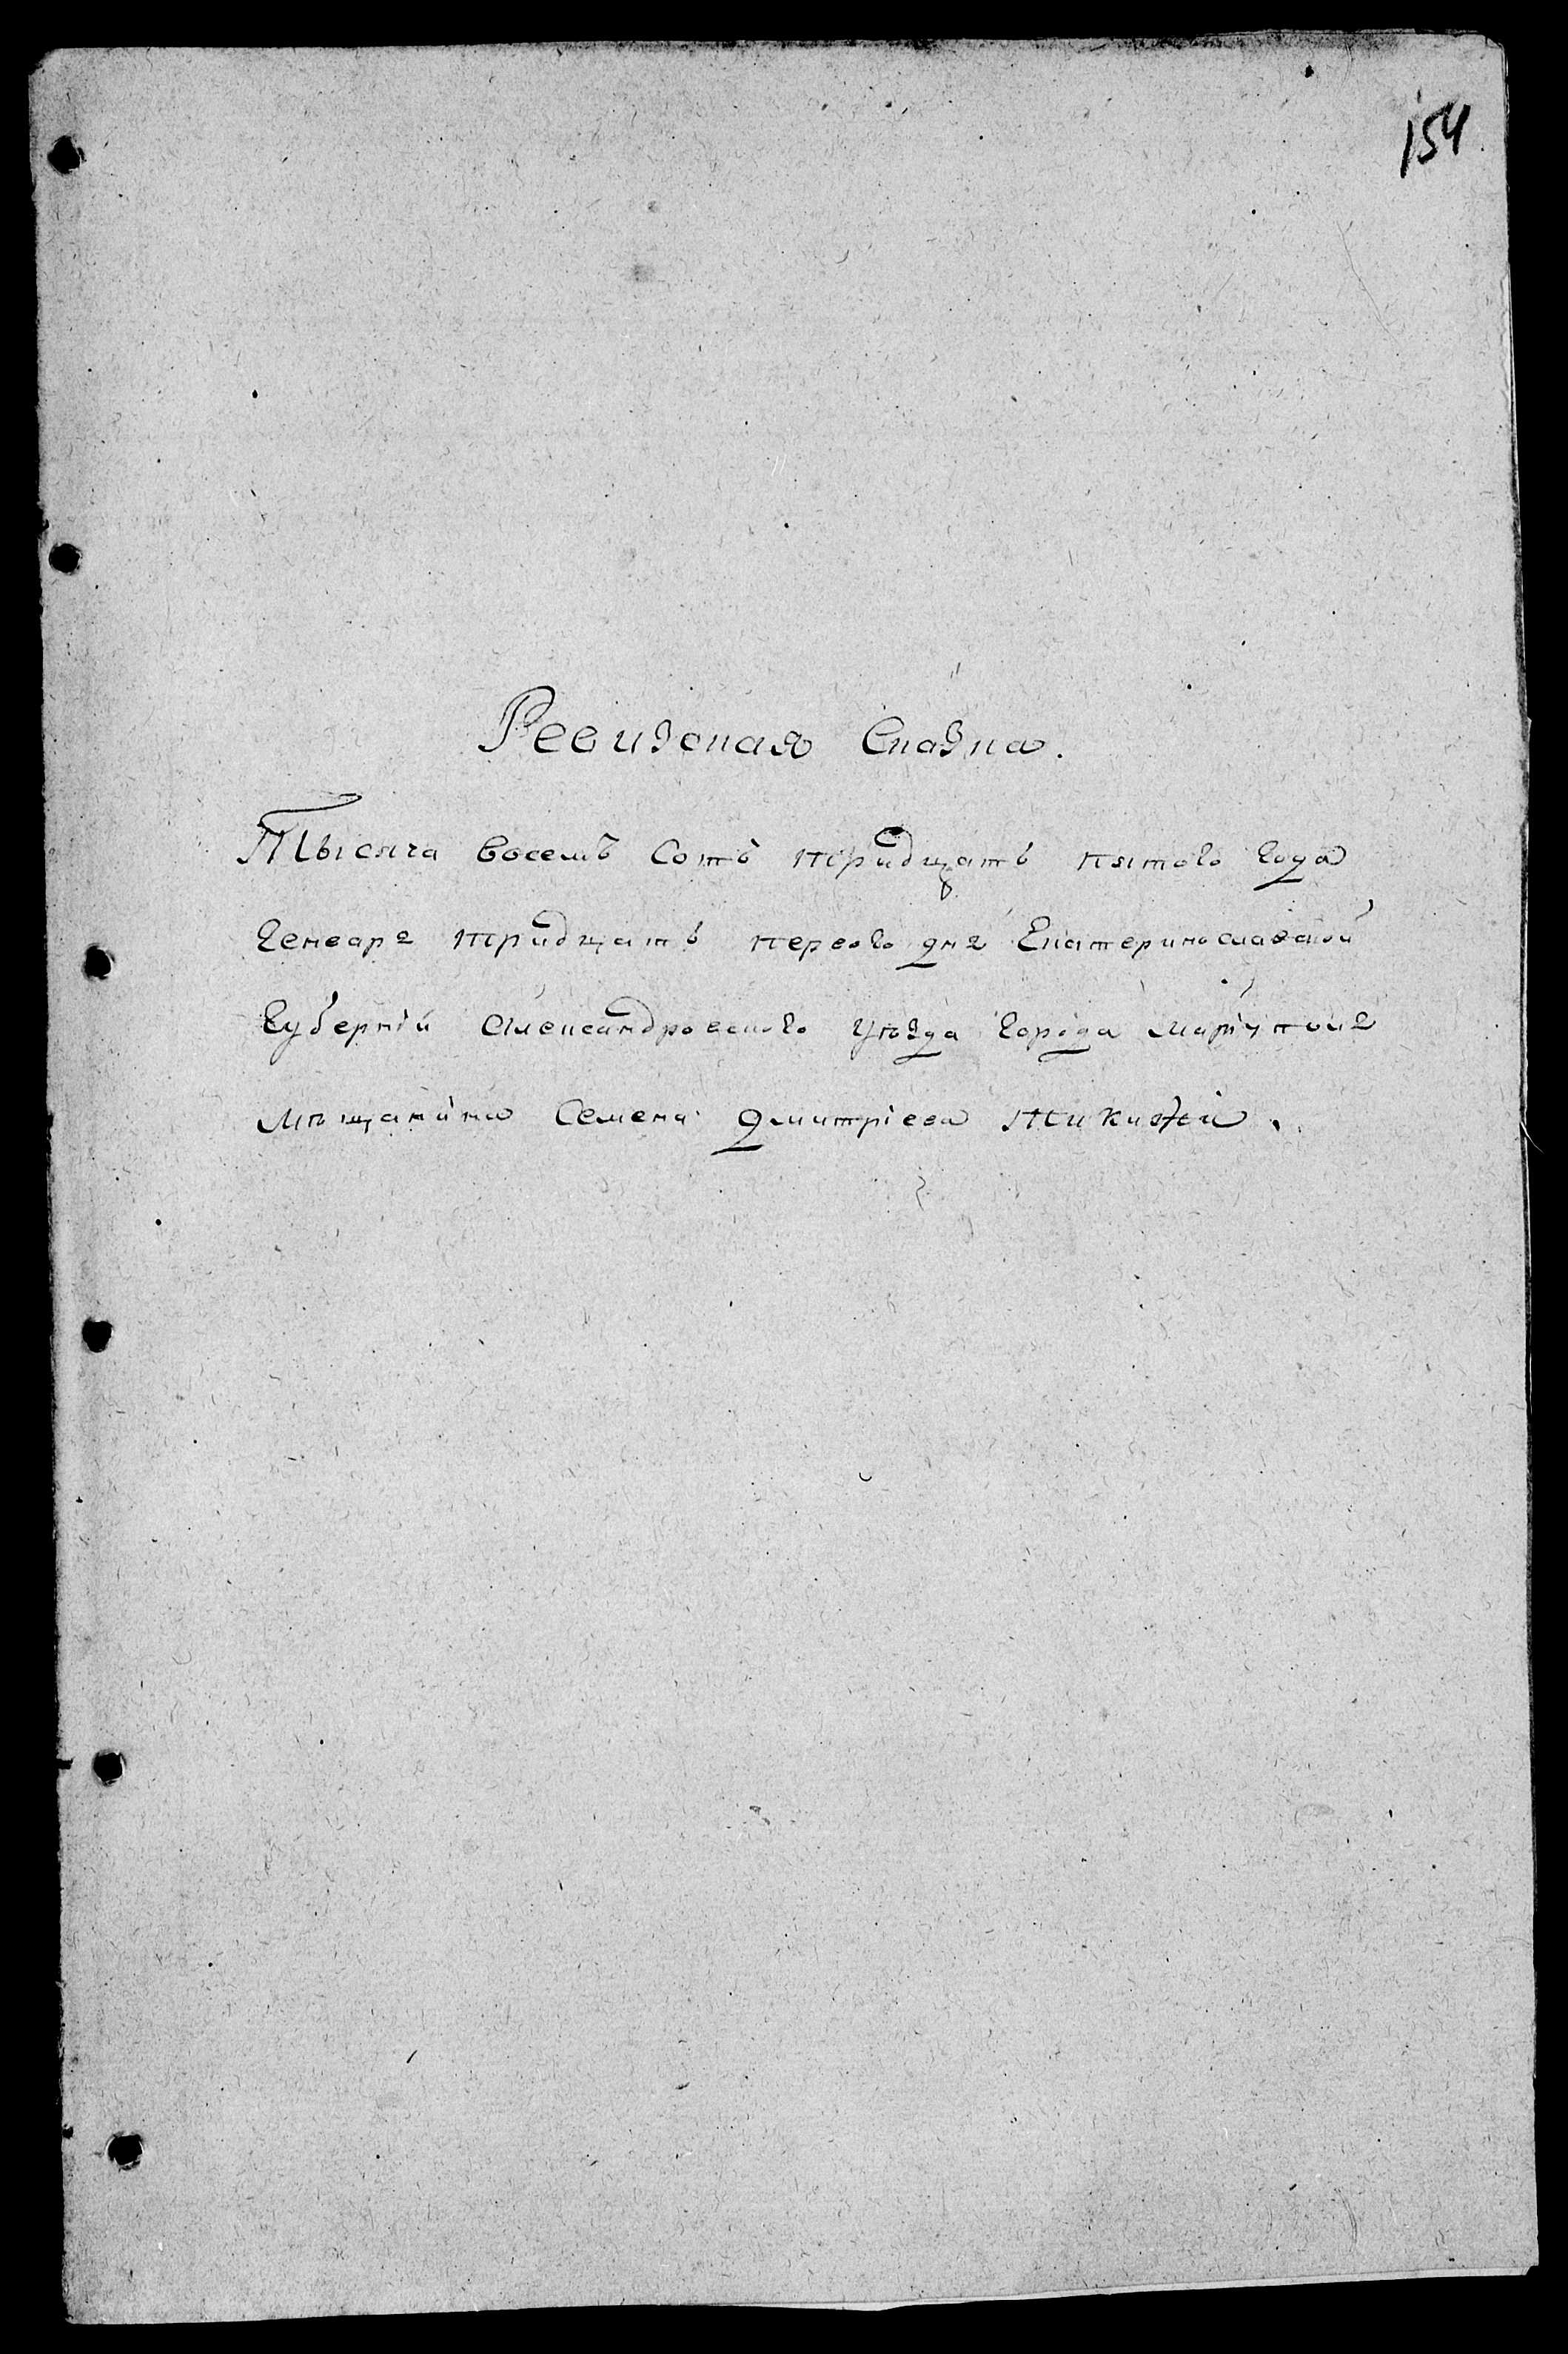 154
Ревизская Сказка.
Тысяча восемъ Сотъ тридцать пятого года
Генваря тридцать первого дня Екатеринославской
Губернiи Александровского уѣзда города Марiуполя
мѣщанина Семена Дмитрiева